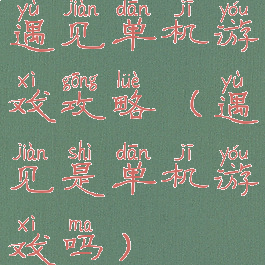 yù jiàn dān jī yóu
遇见单机游
xì gōng lüè yù
戏攻略（遇
jiàn shì dān jī yóu
见是单机游
xì ma
戏吗）